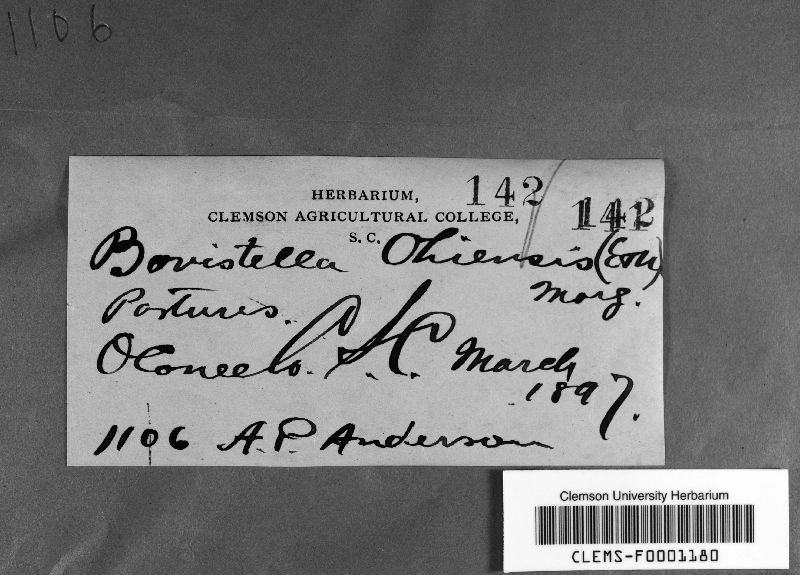 1106
HERBARIUM, 142
CLEMSON AGRICULTURAL COLLEGE, 142
S. C.
Bovistella Ohiensis (Ell)
Morg.
Pastures.
Oconee Co. S.C. March
1897.
1106 A.P. Anderson
Clemson University Herbarium
CLEMS-F0001180